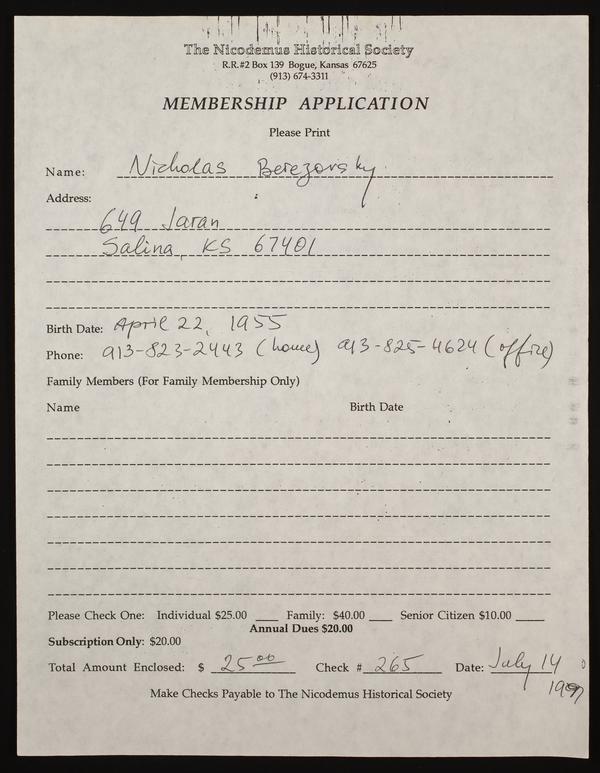 The Nicodemus Historical Society
R.R.#2 Box 139 Bogue, Kansas 67625
(913) 674-3311
MEMBERSHIP APPLICATION
Please Print
Name: Nicholas Berezovsky
Address:
649 Jaran
Salina, KS 67401
Birth Date: April 22, 1955
Phone: 913-823-2443 (home) 913-825-4624 (office)
Family Members (For Family Membership Only)
Name Birth Date
Please Check One: Individual $25.00 ____ Family: $40.00 ____ Senior Citizen $10.00 ____
Annual Dues $20.00
Subscription Only: $20.00
Total Amount Enclosed: $ 25.00 Check # 265 Date: July 14
Make Checks Payable to The Nicodemus Historical Society